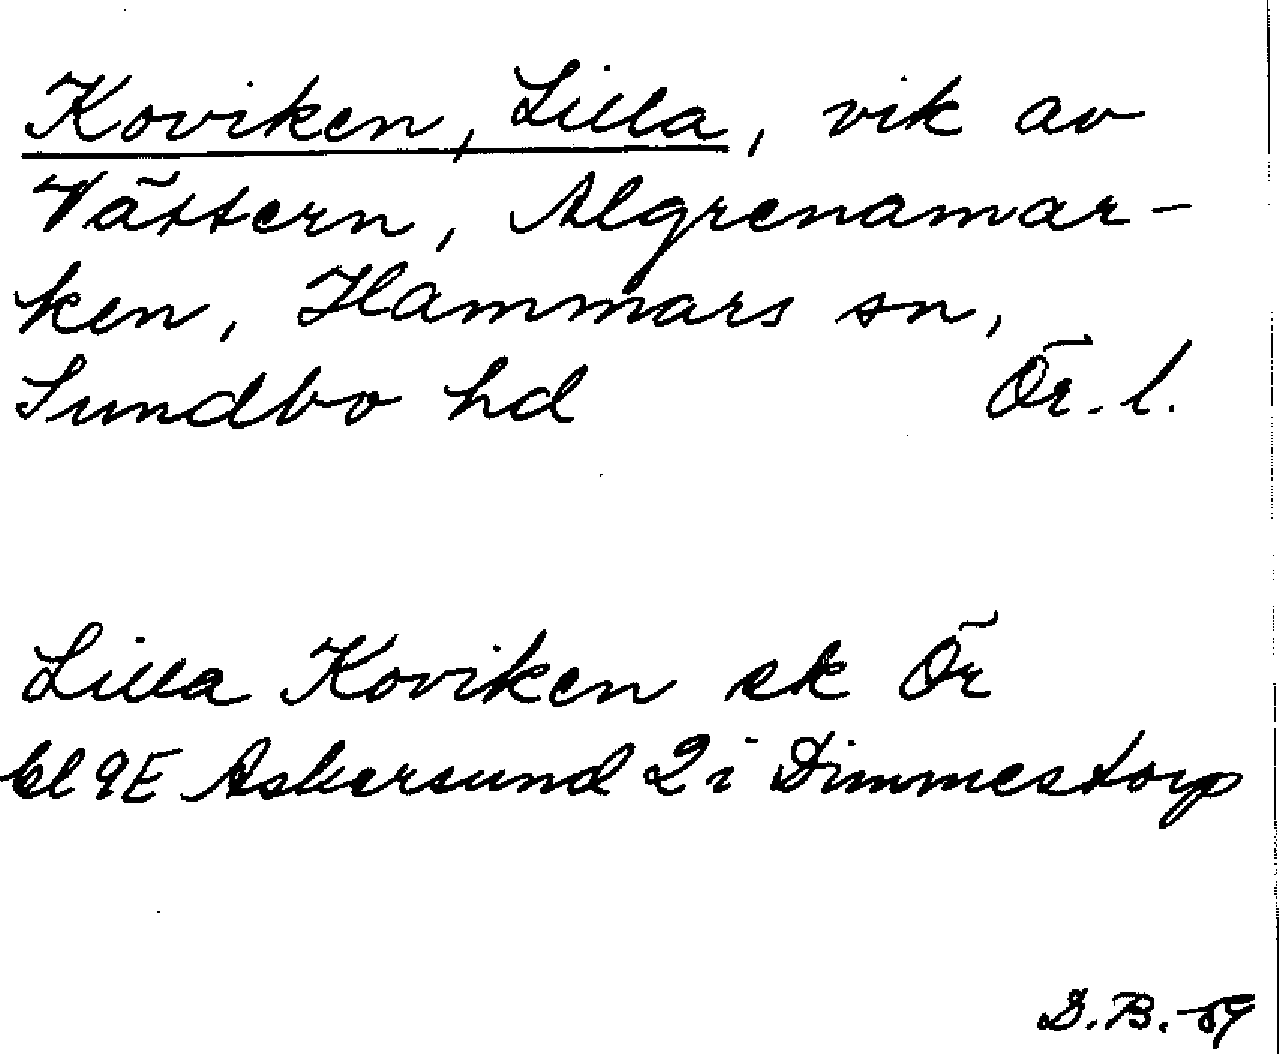 Koviken, Lilla, vik av
Vättern, Algrenamar-
ken, Hammars sn,
Sundbo hd Ör. l.
Lilla Koviken ek Ör
bl 9E Askersund 2 i Dimmestorp
D.B.-59